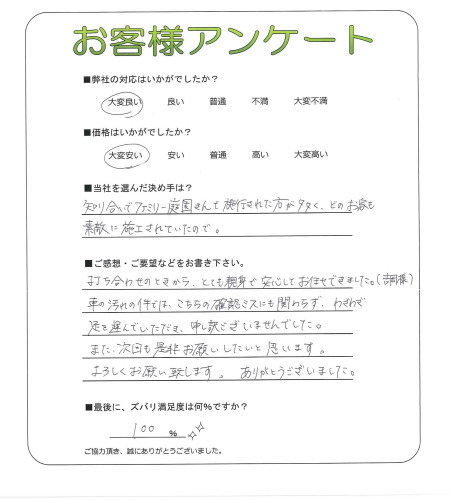 お客様アンケート
■弊社の対応はいかがでしたか？
大変良い 良い 普通 不満 大変不満
■価格はいかがでしたか？
大変安い 安い 普通 高い 大変高い
■当社を選んだ決め手は？
知り合いでファミリー庭園さんで施行された方が多く、どのお家も
素敵に施工されていたので。
■ご感想・ご要望などをお書き下さい。
打ち合わせのときから、とても親身で安心してお任せできました。
車の汚れの件では、こちらの確認ミスにも関わらず、わざわざ
足を運んでいただき、申し訳ございませんでした。
また、次回も是非お願いしたいと思います。
よろしくお願い致します。 ありがとうございました。
■最後に、ズバリ満足度は何％ですか？
100 ％
ご協力頂き、誠にありがとうございました。